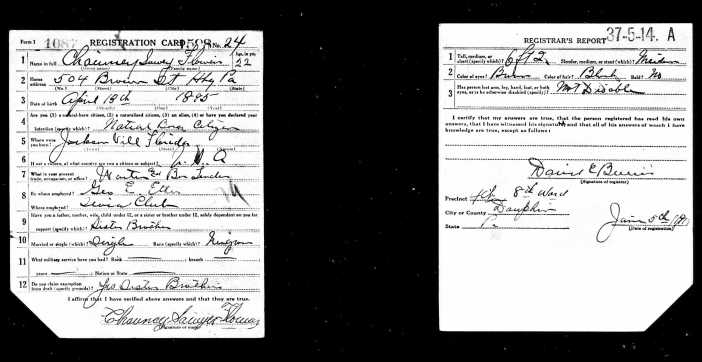 Form 1 1087 REGISTRATION CARD No. 24
1 Name in full Chauncey Flowers Age, in yrs. 22
(Given name) (Family name)
2 Home address 504 St Pa
(No.) (Street) (City) (State)
3 Date of birth April 13th 1895
(Month) (Day) (Year)
4 Are you (1) a natural-born citizen, (2) a naturalized citizen, (3) an alien, (4) or have you declared your
intention (specify which)? Natural Born Citizen
5 Where were you born? Jackson Vill Florida
(Town) (State) (Nation)
6 If not a citizen, of what country are you a citizen or subject?
7 What is your present trade, occupation, or office? Bar Tender
8 By whom employed? Geo E.
Where employed? Club
9 Have you a father, mother, wife, child under 12, or a sister or brother under 12, solely dependent on you for
support (specify which)? Sister Brother
10 Married or single (which)? Single Race (specify which)?
11 What military service have you had? Rank branch
years Nation or State
12 Do you claim exemption from draft (specify grounds)? Yes Sister Brothers
I affirm that I have verified above answers and that they are true.
Chauncey Sawyer Flowers
(Signature or mark)
REGISTRAR'S REPORT 37-5-14. A
1 Tall, medium, or short (specify which)? 6 ft 2 Slender, medium, or stout (which)? Medium
2 Color of eyes? Brown Color of hair? Black Bald? No
3 Has person lost arm, leg, hand, foot, or both eyes, or is he otherwise disabled (specify)? Not Disabled
I certify that my answers are true, that the person registered has read his own
answers, that I have witnessed his signature, and that all of his answers of which I have
knowledge are true, except as follows:
David E
(Signature of registrar)
Precinct 8th Ward
City or County Dauphin
State Pa
June 5th 1917
(Date of registration)